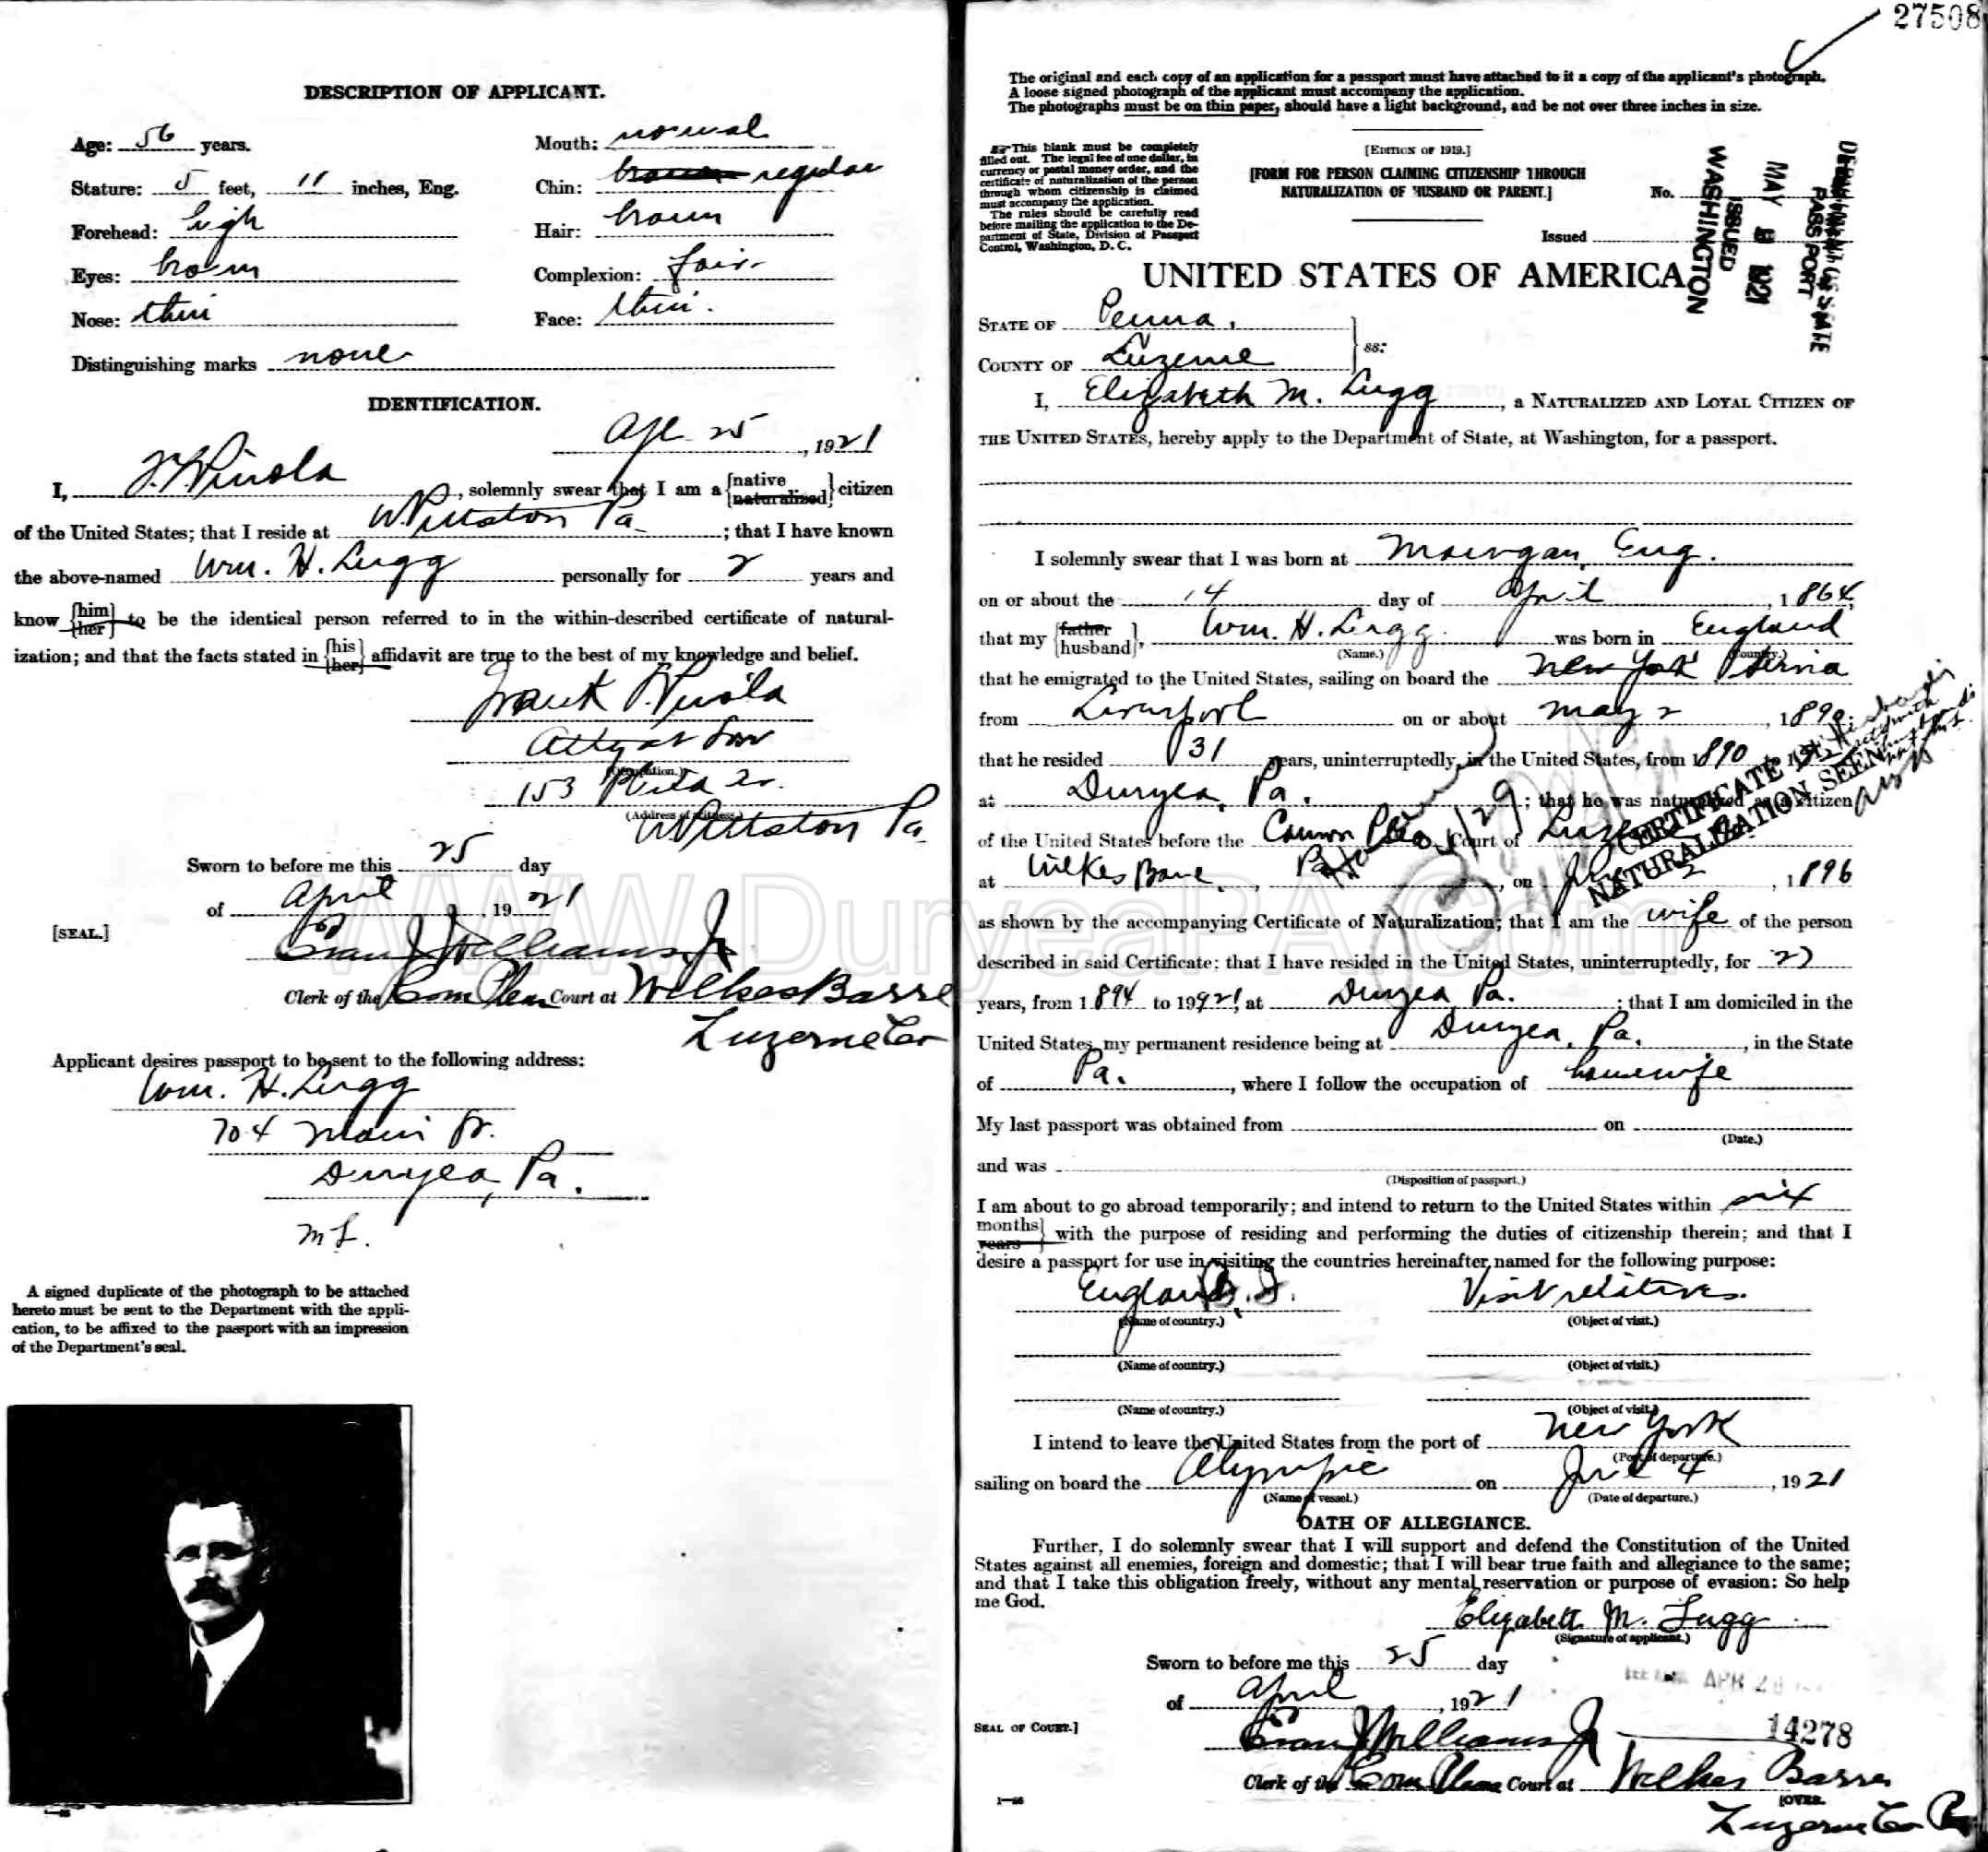 DESCRIPTION OF APPLICANT.
Age: 56 years.
Mouth: normal
Stature: 5 feet, 11 inches, Eng.
Chin: brown regular
Forehead: high
Hair: brown
Eyes: brown
Complexion: fair
Nose: thin
Face: thin.
Distinguishing marks none
IDENTIFICATION.
Apl 25, 1921
I, , solemnly swear that I am a {native naturalized} citizen
of the United States; that I reside at W Pittston Pa ; that I have known
the above-named Wm. H. Lugg personally for 2 years and
know {him her} to be the identical person referred to in the within-described certificate of natural-
ization; and that the facts stated in {his her} affidavit are true to the best of my knowledge and belief.
Frank
Atty at Law
(Occupation.)
153
(Address of witness.)
W Pittston Pa
Sworn to before me this 25 day
of April, 1921
[SEAL.]
Evan J Williams Jr
Clerk of the Com Pleas Court at Wilkes Barre
Luzerne Co
Applicant desires passport to be sent to the following address:
Wm. H. Lugg
704 Main St.
Duryea, Pa.
M L.
A signed duplicate of the photograph to be attached
hereto must be sent to the Department with the appli-
cation, to be affixed to the passport with an impression
of the Department's seal.
27508
The original and each copy of an application for a passport must have attached to it a copy of the applicant's photograph.
A loose signed photograph of the applicant must accompany the application.
The photographs must be on thin paper, should have a light background, and be not over three inches in size.
This blank must be completely
filled out. The legal fee of one dollar, in
currency or postal money order, and the
certificate of naturalization of the person
through whom citizenship is claimed
must accompany the application.
The rules should be carefully read
before mailing the application to the De-
partment of State, Division of Passport
Control, Washington, D. C.
[EDITION OF 1919.]
[FORM FOR PERSON CLAIMING CITIZENSHIP THROUGH
NATURALIZATION OF HUSBAND OR PARENT.]
No.
Issued
DEPARTMENT OF STATE
PASSPORT
MAY 1921
ISSUED
WASHINGTON
UNITED STATES OF AMERICA
STATE OF Penna,
COUNTY OF Luzerne
ss:
I, Elizabeth M. Lugg, a NATURALIZED AND LOYAL CITIZEN OF
THE UNITED STATES, hereby apply to the Department of State, at Washington, for a passport.
I solemnly swear that I was born at Eng.
on or about the 14 day of April, 1864,
that my {father husband}, Wm. H. Lugg was born in England
(Name.) (Country.)
that he emigrated to the United States, sailing on board the New York
from Liverpool on or about May 2, 1890;
that he resided 31 years, uninterruptedly, in the United States, from 1890 to
at Duryea, Pa.; that he was naturalized as a citizen
of the United States before the Common Pleas Court of Luzerne
at Wilkes Barre, Pa, on 2, 1896
CERTIFICATE OF
NATURALIZATION SEEN
as shown by the accompanying Certificate of Naturalization; that I am the wife of the person
described in said Certificate; that I have resided in the United States, uninterruptedly, for 27
years, from 1894 to 1921, at Duryea, Pa.; that I am domiciled in the
United States, my permanent residence being at Duryea, Pa., in the State
of Pa., where I follow the occupation of housewife
My last passport was obtained from on
(Date.)
and was
(Disposition of passport.)
I am about to go abroad temporarily; and intend to return to the United States within six
{months years} with the purpose of residing and performing the duties of citizenship therein; and that I
desire a passport for use in visiting the countries hereinafter named for the following purpose:
England Visit relatives.
(Name of country.) (Object of visit.)
(Name of country.) (Object of visit.)
(Name of country.) (Object of visit.)
I intend to leave the United States from the port of New York
(Port of departure.)
sailing on board the Olympic on 4, 1921
(Name of vessel.) (Date of departure.)
OATH OF ALLEGIANCE.
Further, I do solemnly swear that I will support and defend the Constitution of the United
States against all enemies, foreign and domestic; that I will bear true faith and allegiance to the same;
and that I take this obligation freely, without any mental reservation or purpose of evasion: So help
me God.
Elizabeth M. Lugg
(Signature of applicant.)
Sworn to before me this 25 day
of April, 1921
APR 28
SEAL OF COURT.]
Evan J Williams Jr
14278
Clerk of the Com Pleas Court at Wilkes Barre
[OVER.
Luzerne Co Pa
WWW.DuryeaPA.Com